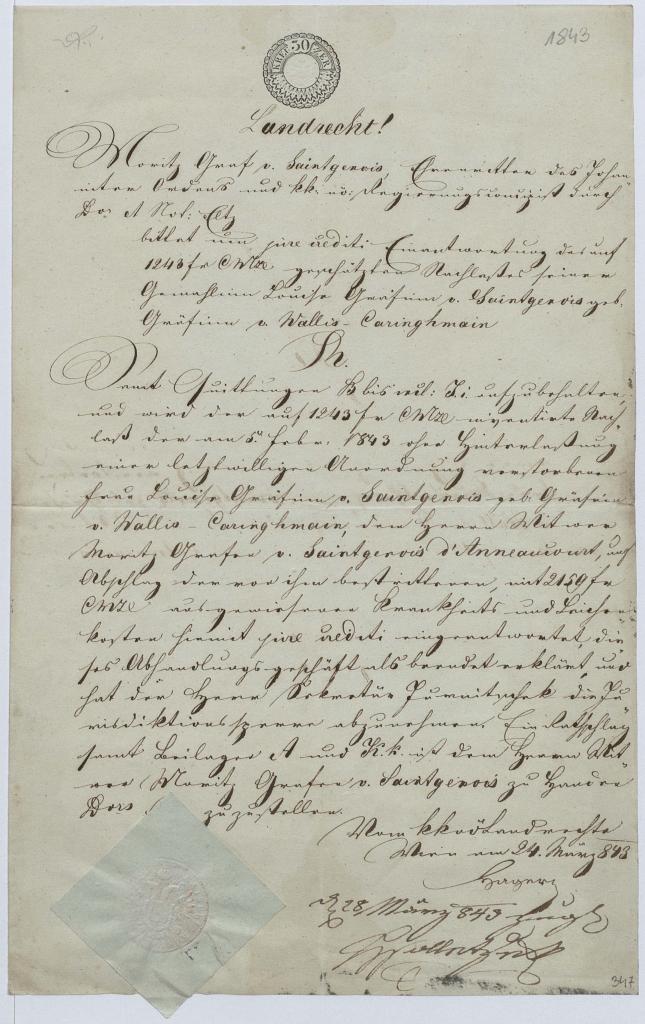 1843
30 KREUZER
Landrecht!
Moritz Graf v. Saintgenois, Ehrenritter des Johan-
niter Ordens und kk: nö: Regierungsconzipist durch
Dor. et Not: Eltz
bittet um jure crediti Einantwortung des auf
1243 fr CMze geschätzten Nachlaßes seiner
Gemahlinn Louise Gräfinn v. Saintgenois geb.
Gräfinn v. Wallis-Caringhmain
Samt Quittungen B bis incl: J.i. aufzubehalten,
und wird der auf 1243 fr CMze inventirte Nach-
laß der am 5n. Febr. 1843 ohne Hinterlaßung
einer letztwilligen Anordnung verstorbenen
Frau Louise Gräfinn v. Saintgenois geb. Gräfinn
v. Wallis-Caringhmain, dem Herrn Witwer
Moritz Grafen v. Saintgenois d'Anneaucourt, auf
Abschlag der von ihm bestrittenen, mit 2159 fr
CMze ausgewiesenen Krankheits und Leichen-
kosten hiemit jure crediti eingeantwortet, die-
ses Abhandlungsgeschäft als beendet erklärt, und
hat der Herr Sekretär die Ju-
risdiktionssperre abzunehmen. Ein Rathschlag
samt Beilagen A und K.k. ist dem Herrn Wit-
wer Moritz Grafen v. Saintgenois zu Handen
Dors zuzustellen.
Vom kk nö Landrechte
Wien am 24. März 843
Hagen
28 März 843
347